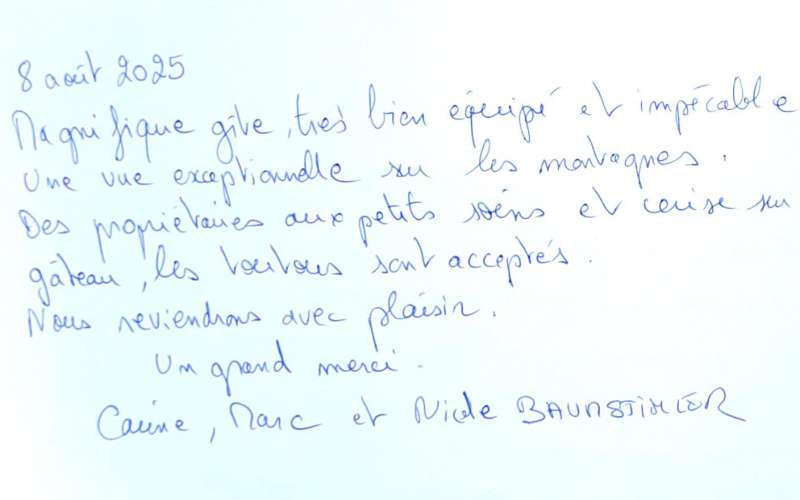 8 août 2025
Magnifique gîte, très bien équipé et impécable
Une vue exceptionnelle sur les montagnes.
Des propriétaires aux petits soins et cerise sur
gâteau, les toutous sont acceptés.
Nous reviendrons avec plaisir.
Un grand merci.
Carine, Marc et Nicole BAUMSTIMLER